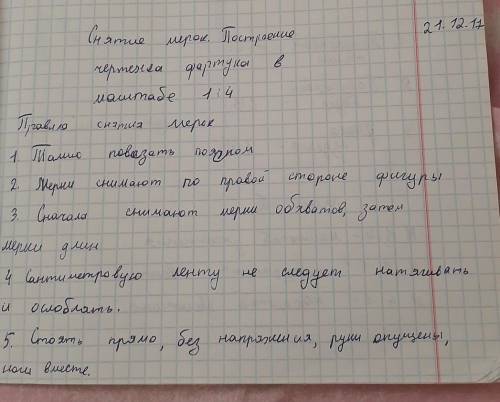 21.12.17
Снятие мерок. Построение
чертежа фартука в
маштабе 1:4
Правила снятия мерок
1. Талию повязать поясом
2. Мерки снимают по правой стороне фигуры
3. Сначала снимают мерки обхватов, затем
мерки длин
4 Сантиметровую ленту не следует натягивать
и ослоблять.
5. Стоять прямо, без напряжения, руки опущены,
ноги вместе.